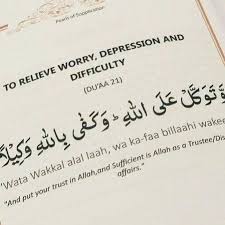 Pearls of Supplication
TO RELIEVE WORRY, DEPRESSION AND
DIFFICULTY
(DU'AA 21)
وَّ تَوَكَّلْ عَلَى اللّٰهِ ؕ وَ كَفٰى بِاللّٰهِ وَكِيْلًا
"Wata Wakkal alal laah, wa ka-faa billaahi wakee
"And put your trust in Allah,and Sufficient is Allah as a Trustee/Dis
affairs."